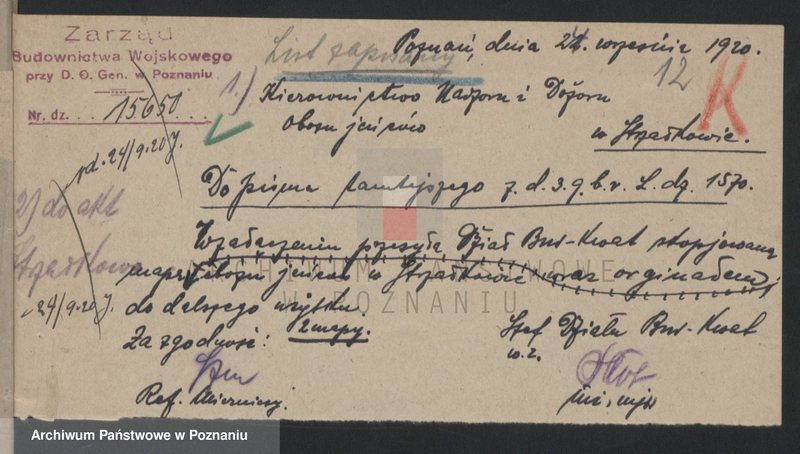 Zarząd
Budownictwa Wojskowego
przy D. O. Gen. w Poznaniu
Nr. dz. . . 15650 . . .
List zapisany
Poznań, dnia 24. września 1920.
12
K
1.) Kierownictwo Nadzoru i Dozoru
obozu jeńców
w Strzałkowie.
pd. 24/9.20 J.
Do pisma tamtejszego z. d. 3. 9. b. r. L. dz. 1570.
2) do akt
Strzałkowo
24/9.20 J.
W załączeniu przesyła Dział Bud-Kwat skopjowaną
mapę obozu jeńców w Strzałkowie wraz orginałem
do dalszego użytku.
2 mapy.
Za zgodność:
Szef Działu Bud-Kwat
w. z.
Ref. Mierniczy.
ARCHIWUM PAŃSTWOWE
W POZNANIU
Archiwum Państwowe w Poznaniu